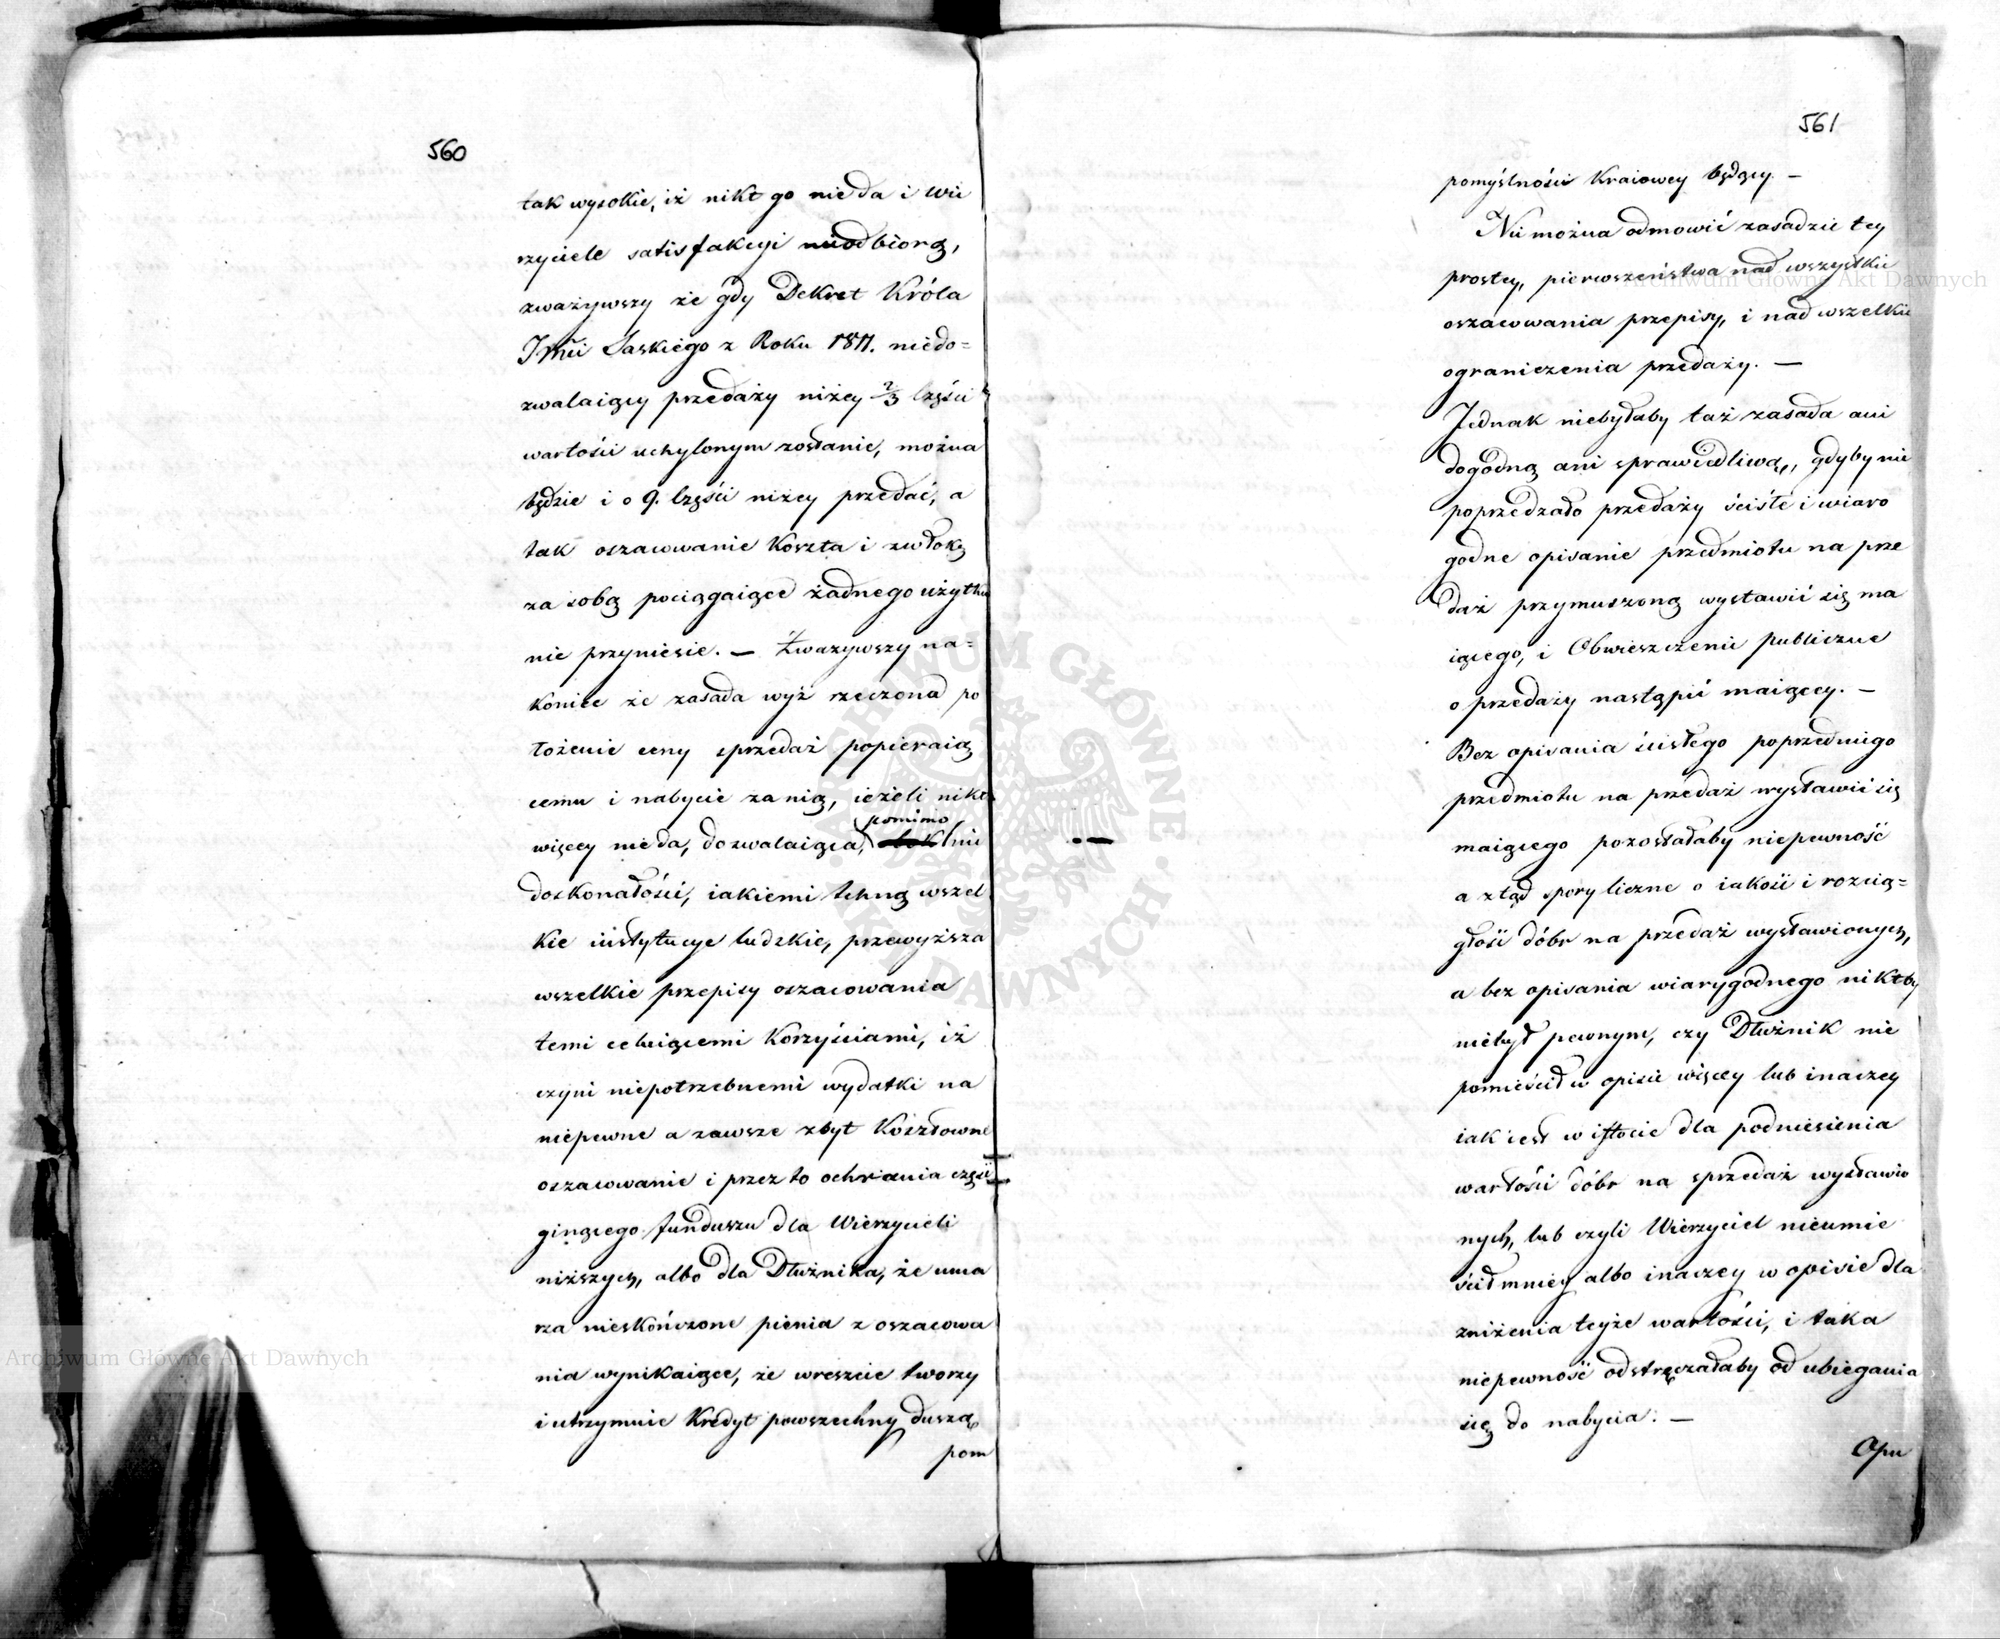 560
tak wysokie, iż nikt go nie da i Wie
rzyciele satisfakcyi nieodbiorą,
zważywszy że gdy Dekret Króla
Jmći Saskiego z Roku 1811. niedo=
zwalaiący przedaży niżey 2/3 części
wartości uchylonym zostanie, można
będzie i o 9. części niżey przedać, a
tak oszacowanie Koszta i zwłokę
za sobą pociągaiące żadnego użytku
nie przyniesie. — Zważywszy na=
koniec że zasada wyż rzeczona po
łożenie ceny sprzedaż popieraią
cemu i nabycie za nią, ieżeli nikt
pomimo
więcey nie da, dozwalaiąca, nie
doskonałości, iakiemi tchną wszel
kie instytucye ludzkie, przewyższa
wszelkie przepisy oszacowania
temi celuiącemi Korzyściami, iż
czyni niepotrzebnemi wydatki na
niepewne a zawsze zbyt Kosztowne
oszacowanie i przez to ochrania część
ginącego funduszu dla Wierzycieli
niższych, albo dla Dłużnika, że uma
rza nieskończone pienia z oszacowa
nia wynikaiące, że wreszcie tworzy
i utrzymuie Kredyt powszechny duszą
pom
561
pomyślności Kraiowey będący. —
Nie można odmowić zasadzie tey
prostey, pierwszeństwa nad wszystkie
oszacowania przepisy, i nad wszelkie
ograniczenia przedaży. —
Jednak niebyłaby taż zasada ani
dogodną ani sprawiedliwą, gdyby nie
poprzedzało przedaży ściśłe i wiaro
godne opisanie przedmiotu na prze
daż przymuszoną wystawić się ma
iącego, i Obwieszczenie publiczne
o przedaży nastąpić maiącey. —
Bez opisania ścisłego poprzedniego
przedmiotu na przedaż wystawić się
maiącego pozostałaby niepewność
a ztąd spory liczne o iakości i rozcią=
głości dóbr na przedaż wystawionych,
a bez opisania wiarygodnego niktby
niebył pewnym, czy Dłużnik nie
pomieścił w opisie więcey lub inaczey
iak iest w istocie dla podniesienia
wartości dóbr na sprzedaż wystawio
nych, lub czyli Wierzyciel nieumie
ścił mniey albo inaczey w opisie dla
zniżenia teyże wartości, i taka
niepewność odstręczałaby od ubiegania
się do nabycia. —
Opu
Archiwum Główne Akt Dawnych
Archiwum Główne Akt Dawnych
ARCHIWUM GŁÓWNE · AKT DAWNYCH ·